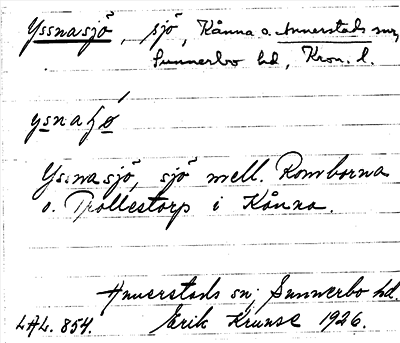 Yssnasjö, sjö, Kånna o. Annerstads snr,
Sunnerbo hd, Kron. l.
Yssnasjö, sjö mell. Romborna
o. Trollestorp i Kånna.
Annerstads sn; Sunnerbo hd.
LAL. 854. Erik Krunse 1926.